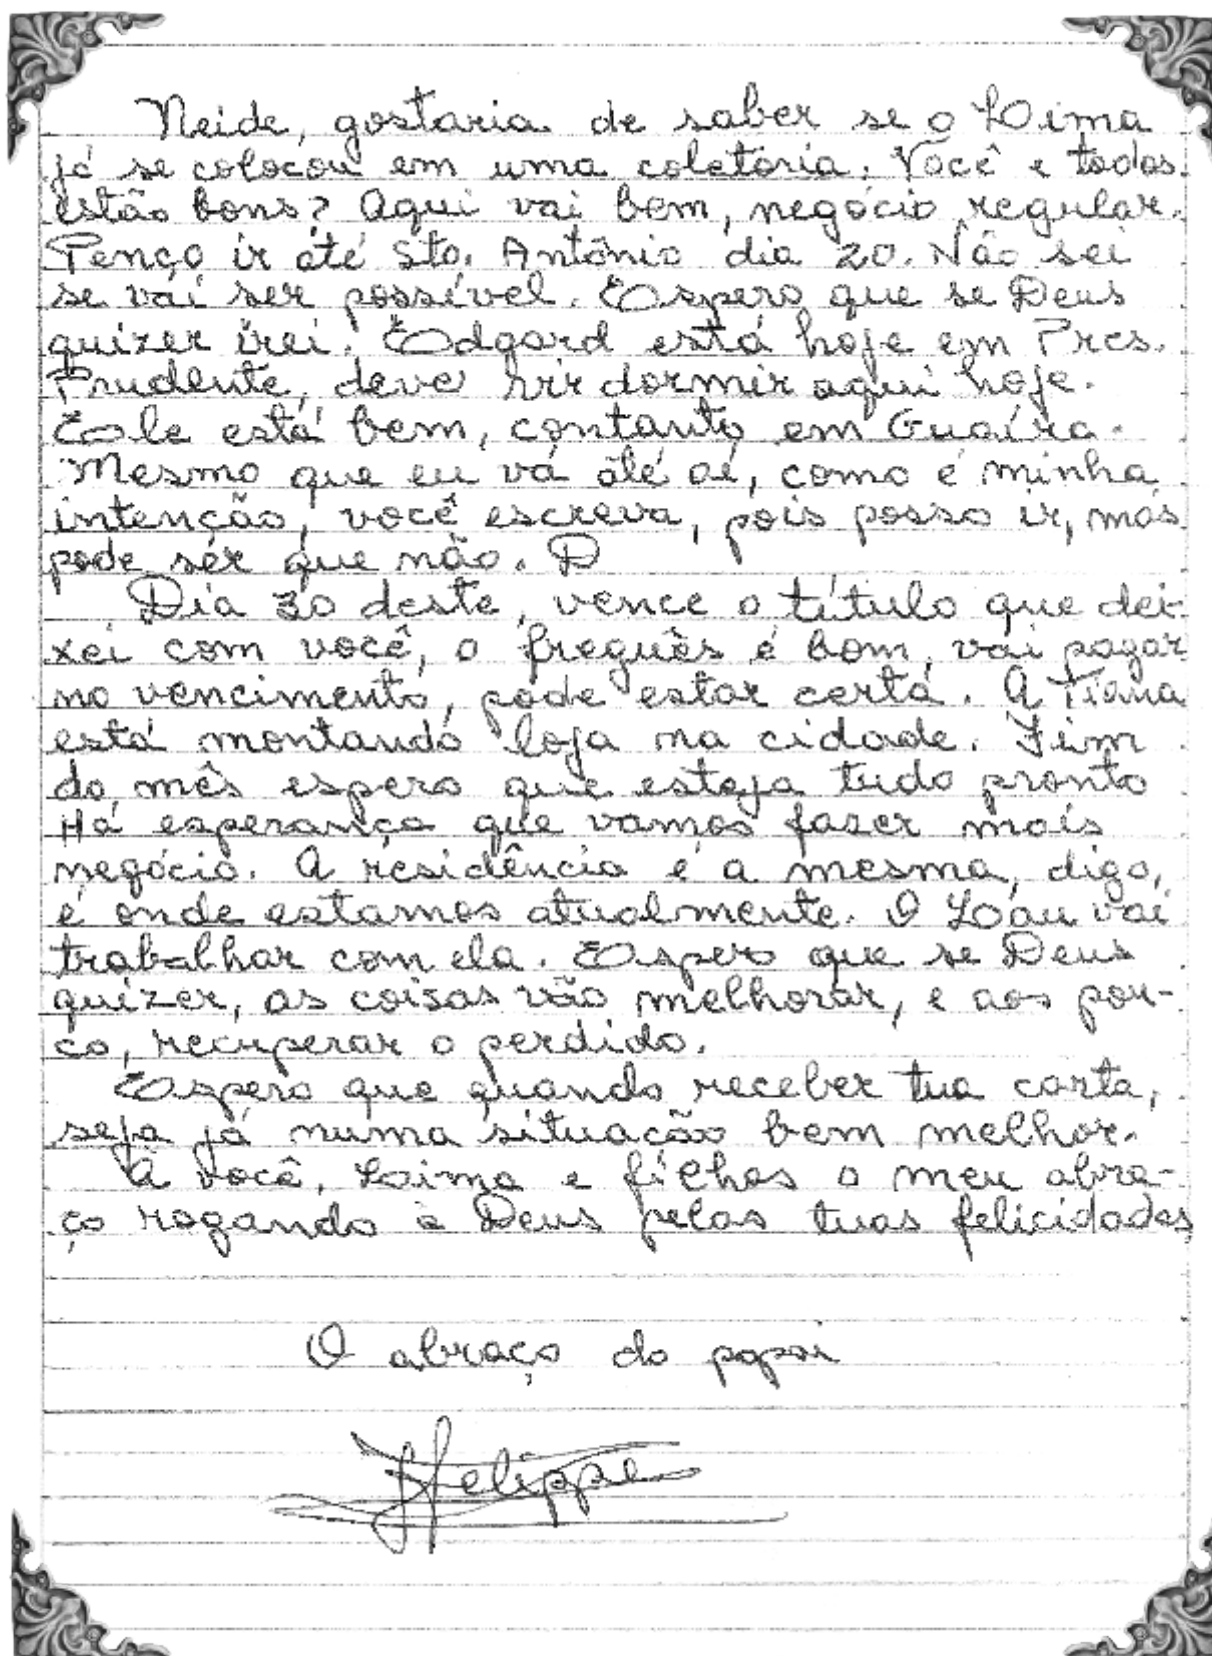 Neide, gostaria de saber se o Lima
já se colocou em uma coletoria. Você e todos
estão bons? Aqui vai bem, negócio regular.
Penço ir até Sto. Antônio dia 20. Não sei
se vai ser possível. Espero que se Deus
quizer irei. Edgard está hoje em Pres.
Prudente, deve vir dormir aqui hoje.
Ele está bem, contanto em Guaíra.
Mesmo que eu vá até aí, como é minha
intenção, você escreva, pois posso ir, mas
pode sér que não. D
Dia 30 deste, vence o título que dei-
xei com você, o freguês é bom, vai pagar
no vencimento, pode estar certa. A
está montando loja na cidade. Fim
do mês espero que esteja tudo pronto
Há esperança que vamos fazer mais
negócio. A residência é a mesma, digo,
é onde estamos atualmente. O vai
trabalhar com ela. Espero que se Deus
quizer, as coisas vão melhorar, e aos pou-
co, recuperar o perdido.
Espero que quando receber tua carta,
seja já numa situação bem melhor.
A você, Lima e filhos o meu abra-
ço rogando à Deus pelas tuas felicidades
O abraço do papai
Felippe